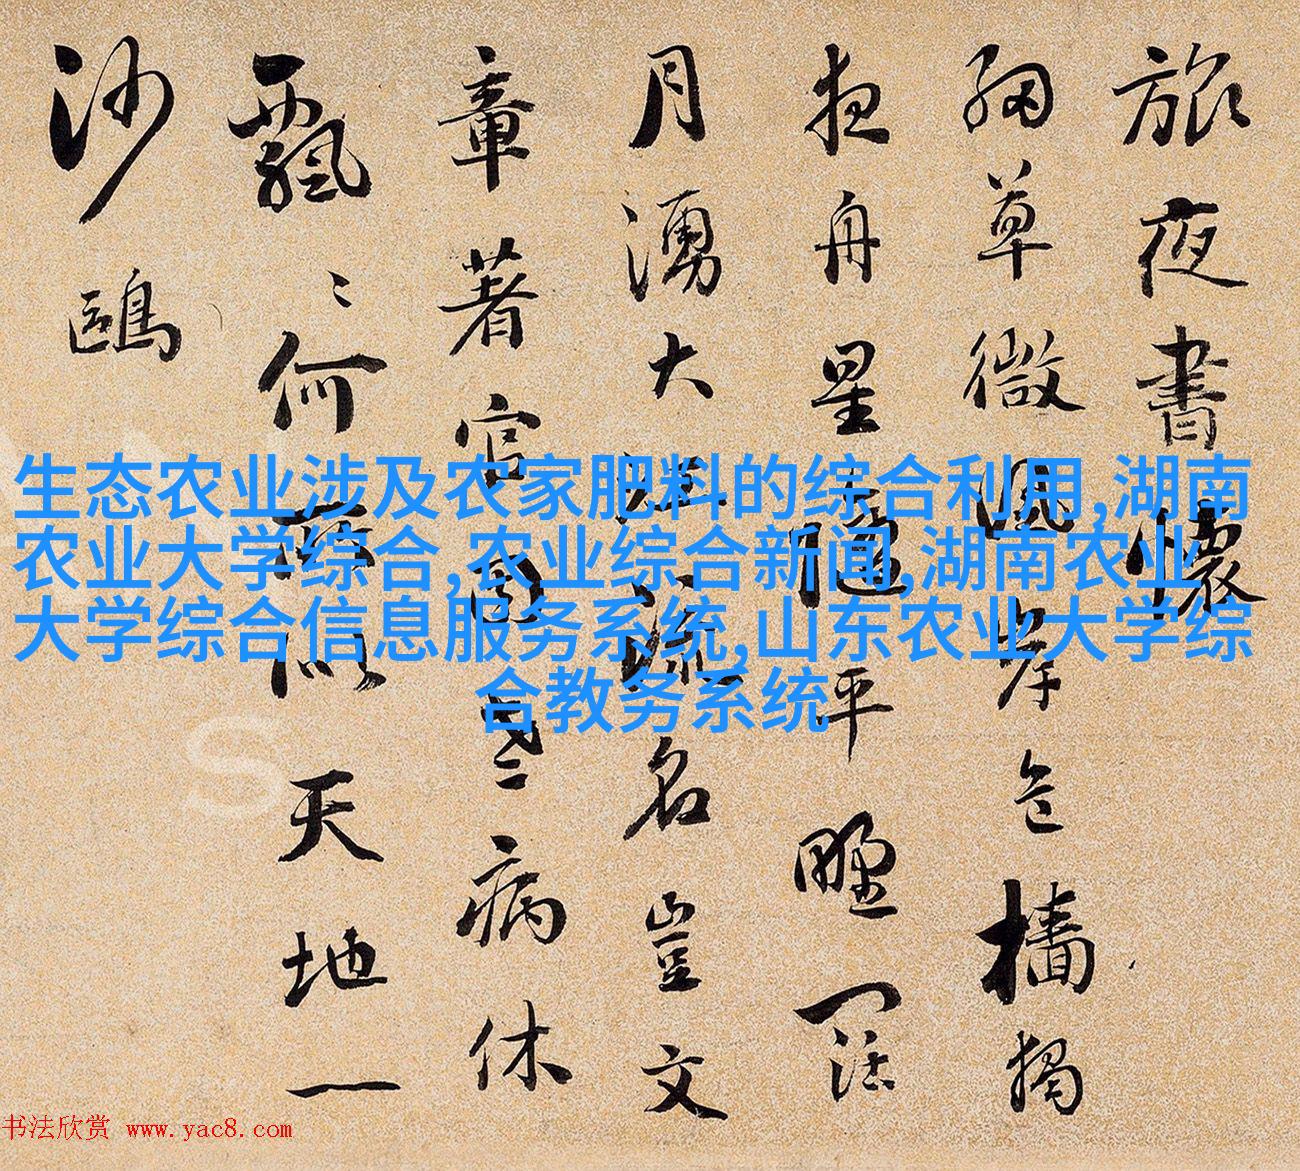 旅夜書懷
細草微風岸危檣獨
夜舟星隨平野闊
月湧大江流名豈文
章著官因老病休
飄〻何所似天地一
沙鷗
生态农业涉及农家肥料的综合利用,湖南
农业大学综合,农业综合新闻,湖南农业
大学综合信息服务系统,山东农业大学综
合教务系统
书法欣赏 www.yac8.com